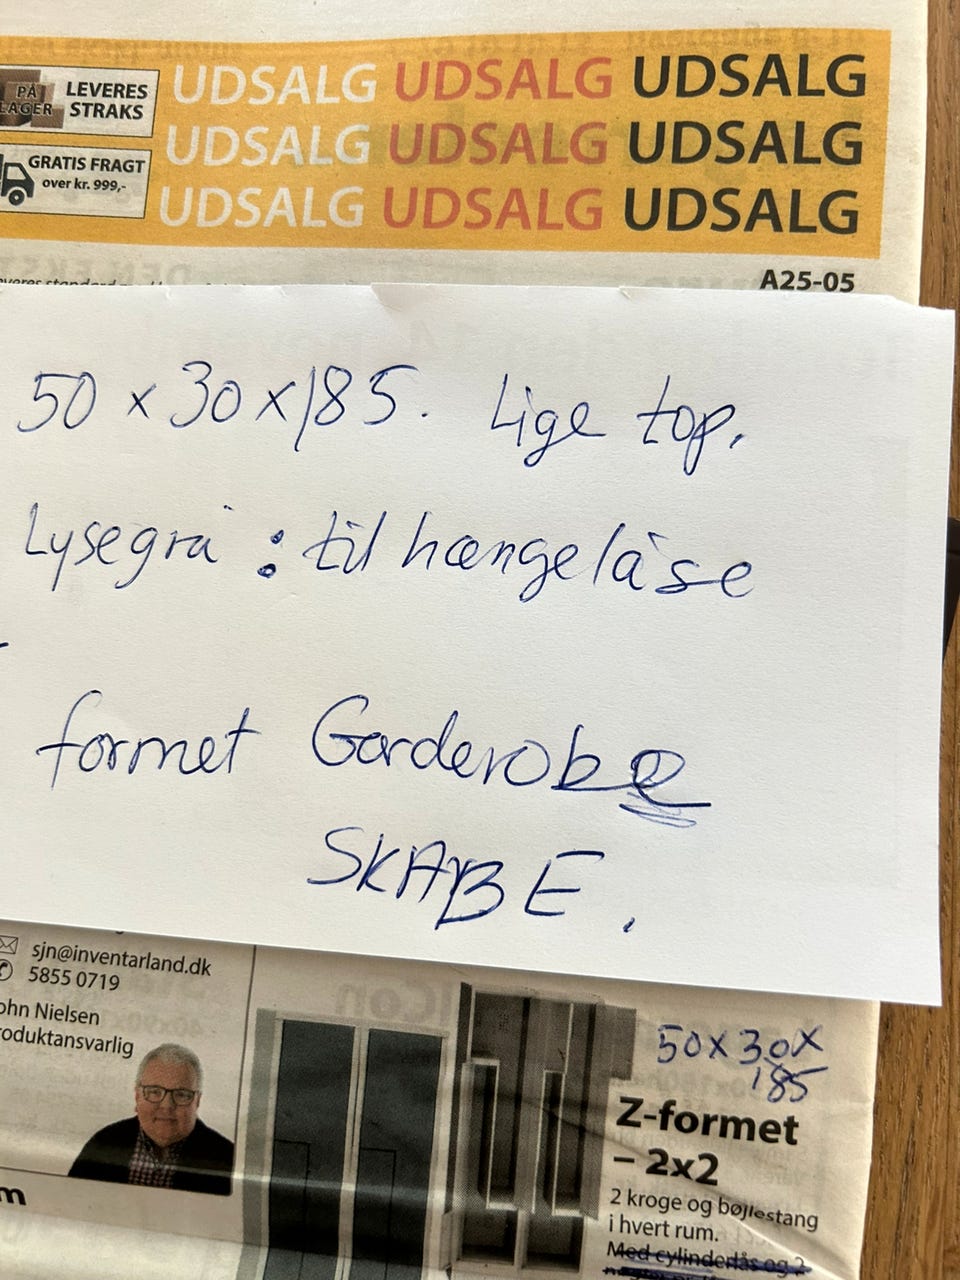 PÅ LAGER
LEVERES STRAKS
UDSALG UDSALG UDSALG
GRATIS FRAGT
over kr. 999,-
UDSALG UDSALG UDSALG
UDSALG UDSALG UDSALG
A25-05
50 x 30 x 185. Lige top.
Lysegrå : til hængelåse
formet Garderobe
SKABE.
sjn@inventarland.dk
5855 0719
ohn Nielsen
roduktansvarlig
50x30x
185
Z-formet
– 2x2
2 kroge og bøjlestang
i hvert rum.
Med cylinderlås og 2
m